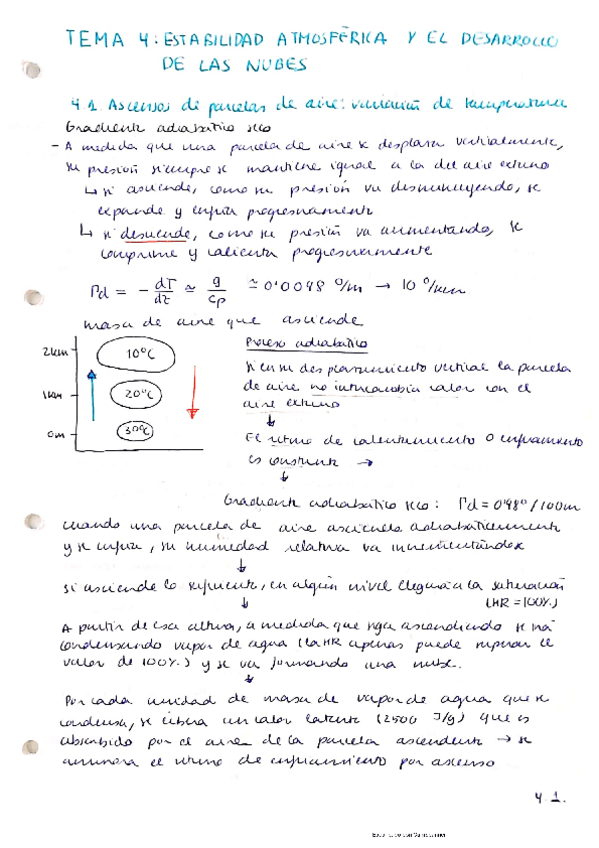 TEMA 4: ESTABILIDAD ATMOSFÉRICA Y EL DESARROLLO
DE LAS NUBES
4.1. Ascensos de parcelas de aire: variación de temperatura
Gradiente adiabático seco
- A medida que una parcela de aire se desplaza verticalmente,
su presión siempre se mantiene igual a la del aire externo
↳ si asciende, como su presión va disminuyendo, se
expande y enfría progresivamente
↳ si desciende, como su presión va aumentando, se
comprime y calienta progresivamente
Γd = - dT/dz ≃ g/cp ≃ 0'0098 º/m → 10 º/km
masa de aire que asciende
2km 10ºC
1km 20ºC
0m 30ºC
Proceso adiabático
Si en su desplazamiento vertical la parcela
de aire no intercambia calor con el
aire externo
↓
El ritmo de calentamiento o enfriamiento
es constante →
↓
Gradiente adiabático seco: Γd = 0'98º/100m
Cuando una parcela de aire asciende adiabáticamente
y se enfría, su humedad relativa va incrementándose
↓
Si asciende lo suficiente, en algún nivel llegará a la saturación
↓ (HR = 100%)
A partir de esa altura, a medida que siga ascendiendo se irá
condensando vapor de agua (la HR apenas puede superar el
valor de 100%) y se va formando una nube.
↓
Por cada unidad de masa de vapor de agua que se
condensa, se libera un calor latente (2500 J/g) que es
absorbido por el aire de la parcela ascendente → se
aminora el ritmo de enfriamiento por ascenso
4.1.